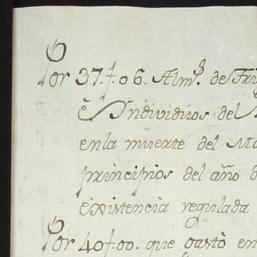 Por 37.f.o6. Alm.s de Tri
é Individuos del
en la muerte del Ma
principios del año d
existencia regulada
Por 40f.oo. que gastó en